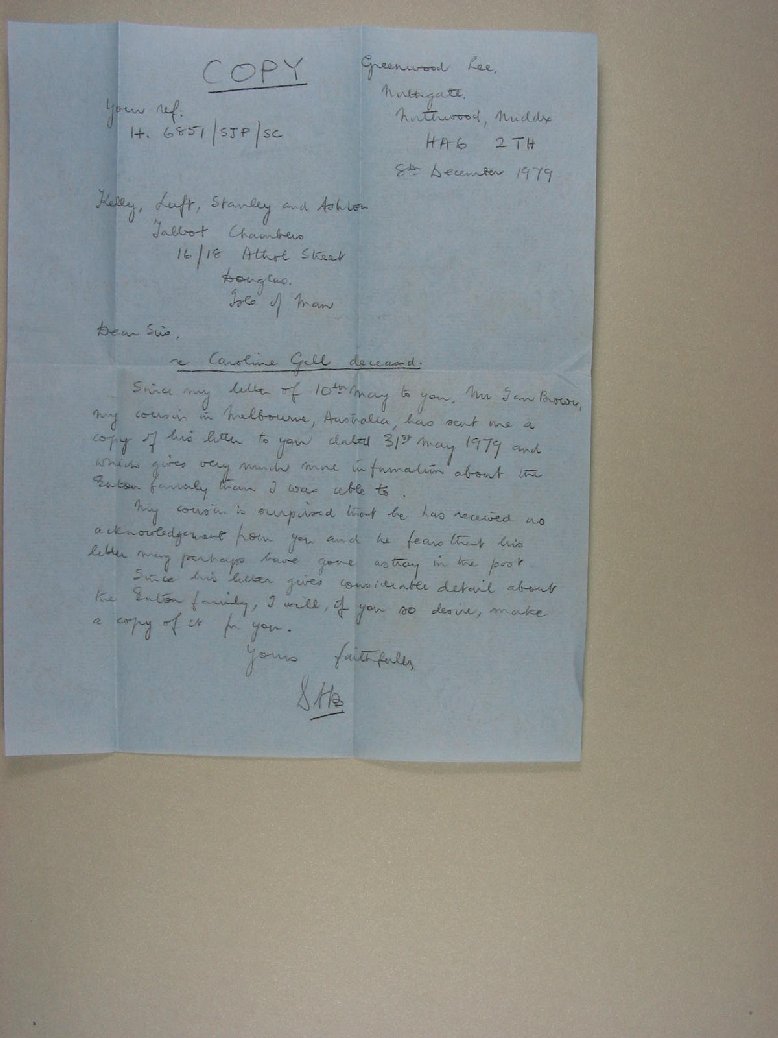 COPY
Greenwood Lee,
Northgate,
Northwood, Middx
HA6 2TH
8th December 1979
Your ref.
H. 6851/SJP/SC
Kelly, Luft, Stanley and Ashton
Talbot Chambers
16/18 Athol Street
Douglas.
Isle of Man
Dear Sirs,
re Caroline Gell deceased.
Since my letter of 10th May to you, Mr Ian Brown,
my cousin in Melbourne, Australia, has sent me a
copy of his letter to you dated 31st May 1979 and
which gives very much more information about the
Eaton family than I was able to.
My cousin is surprised that he has received no
acknowledgement from you and he fears that his
letter may perhaps have gone astray in the post.
Since his letter gives considerable detail about
the Eaton family, I will, if you so desire, make
a copy of it for you.
Yours faithfully,